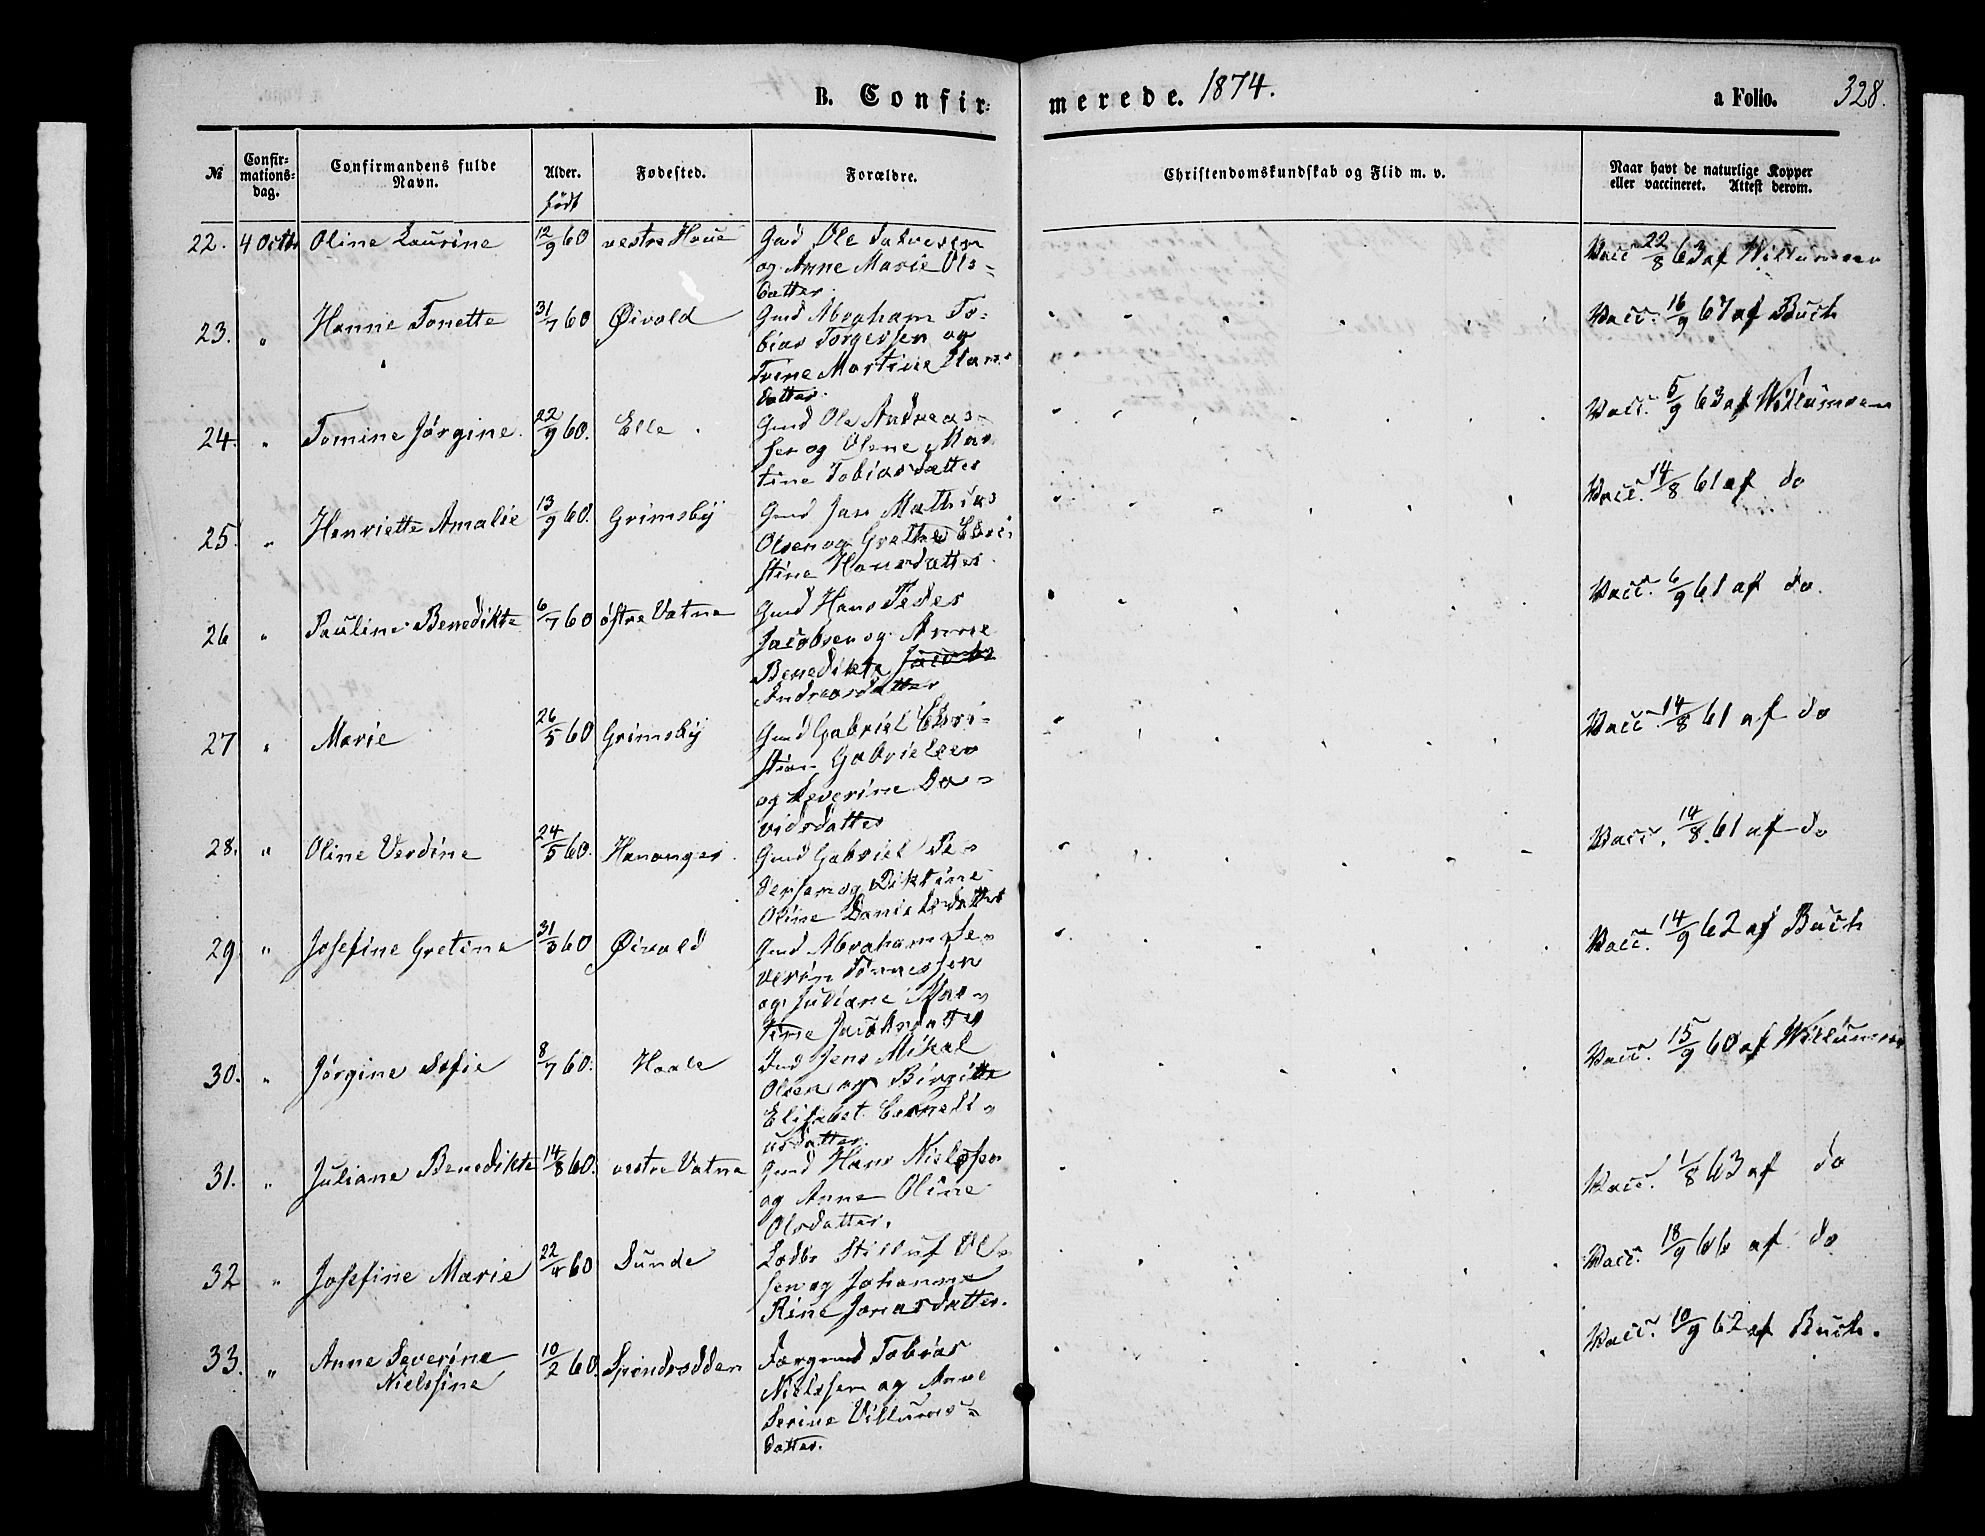 B. Confir-
merede. 1874.
a Folio. 328.
№
Confir-
mations-
dag.
Confirmandens fulde
Navn.
Alder.
født
Fødested.
Forældre.
Christendomskundskab og Flid m. v.
Naar havt de naturlige Kopper
eller vaccineret. Attest derom.
22. 4 Octb Oline Laurine 12/9 60 vestre Haue Gmd Ole Salvesen
og Anne Marie Ols-
datter.
Vacc 22/8 63 af Willumsen
23. " Hanne Tonette 31/7 60 Øivold Gmd Abraham To-
bias Torgersen og
Trine Martine Hans
datter.
Vacc. 16/9 67 af Buch
24. " Tomine Jørgine. 22/9 60. Elle. Gmd Ole Andreas-
sen og Olene Mar
tine Tobiasdatter
Vacc. 5/9 63 af Willumsen
25. " Henriette Amalie 13/9 60. Grimsby Gmd Jan Mathias
Olsen og Grethe Chri-
stine Hansdatter.
Vacc. 14/8 61 af do
26 " Pauline Benedikte 6/7 60 østre Vatne Gmd Hans Peder
Jacobsen og Anne
Benedikte Jacobs
Andreasdatter
Vacc. 6/9 61 af do.
27 " Marie 26/5 60 Grimsby Gmd Gabriel Chri-
stian Gabrielsen
og Severine Da-
vidsdatter
Vacc. 14/8 61 af do
28. " Oline Verdine 24/5 60. Hananger. Gmd Gabriel Pe-
dersen og Diktine
Oline Danielsdatter
Vacc. 14/8 61 af do
29 " Josefine Gretine 31/3 60 Øivold Gmd Abraham Se-
verin Tønnessen
og Juliane Mar-
tine Jacobsdatter
Vacc. 14/9 62 af Buch
30. " Jørgine Sofie 8/7 60. Haale Ind Jens Mikal
Olsen og Birgitte
Elisabet Berned-
usdatter.
Vacc. 15/9 60 af Willumsen
31. " Juliane Benedikte 14/8 60. vestre Vatne Gmd Hans Nielssen
og Anne Oline
Olsdatter.
Vacc. 1/8 63 af do
32 " Josefine Marie 22/4 60 Sunde Lodbr Stilluf Ol-
sen og Johanne
Rine Jonasdatter.
Vacc. 18/9 66 af do
33. " Anne Severine
Nielssine 10/2 60. Spindsodden Færgmd Tobias
Nielssen og Anne
Serine Villums-
datter.
Vacc. 10/9 62 af Buch.